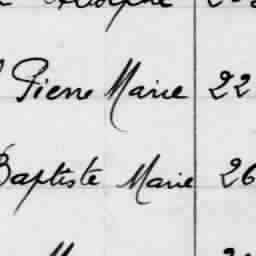 Adolphe 2
Pierre Marie 22
Baptiste Marie 26